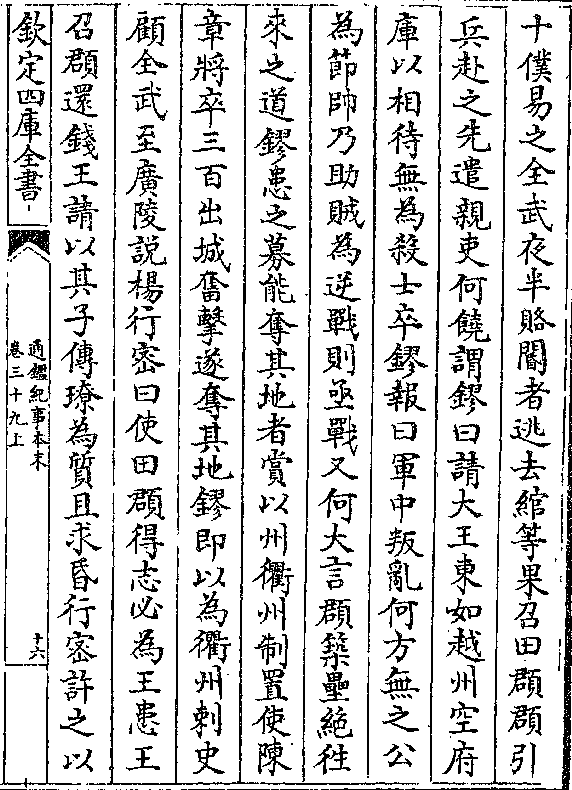 十僕易之全武夜半賂閽者逃去綰等果召田頵頵引
兵赴之先遣親吏何饒謂鏐曰請大王東如越州空府
庫以相待無為殺士卒鏐報曰軍中叛亂何方無之公
為節帥乃助賊為逆戰則亟戰又何大言頵築壘絶徃
來之道鏐患之募能奪其地者賞以州衢州制置使陳
章將卒三百出城奮擊遂奪其地鏐即以為衢州刺史
顧全武至廣陵説楊行密曰使田頵得志必為王患王
召頵還錢王請以其子傳璙為質且求昏行密許之以
欽定四庫全書
通鑑紀事本末
卷三十九上
十六